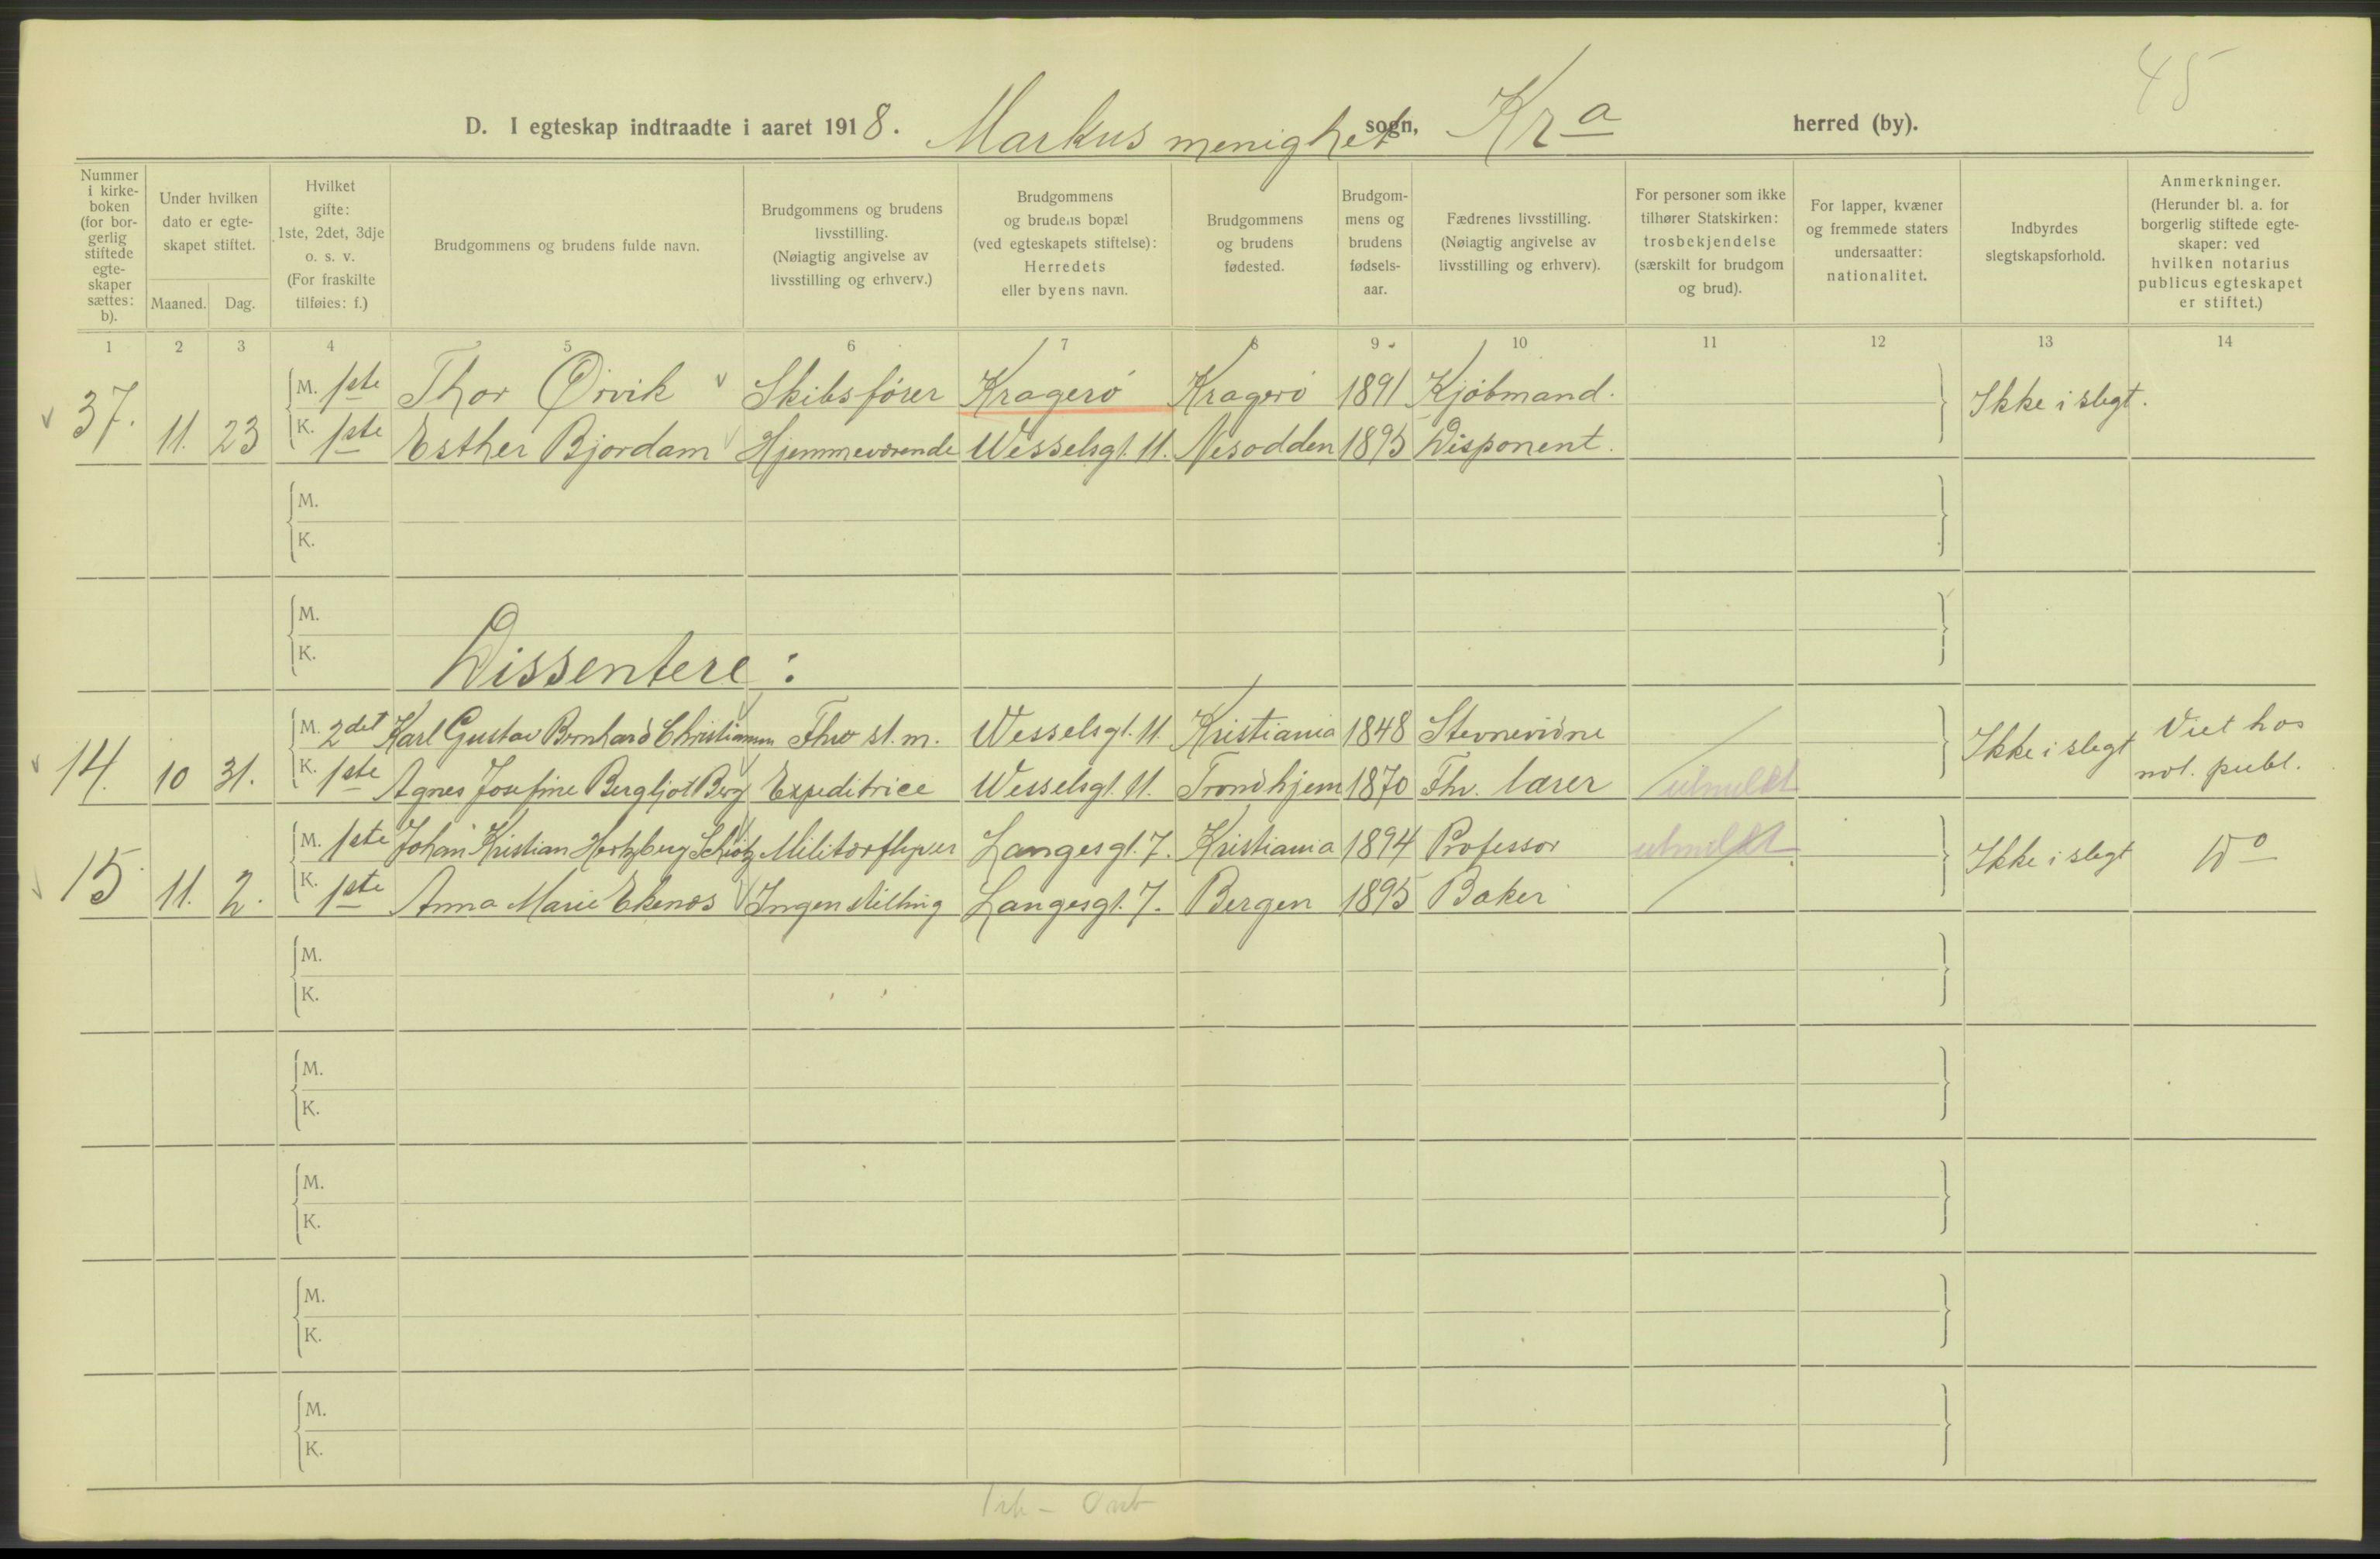 45
D. I egteskap indtraadte i aaret 1918. Markus menighet sogn, Kra herred (by).
Nummer i kirke- boken (for bor- gerlig stiftede egte- skaper sættes: b).
Under hvilken dato er egte- skapet stiftet.
Maaned. Dag.
Hvilket gifte: 1ste, 2det, 3dje o. s. v. (For fraskilte tilføies: f.)
Brudgommens og brudens fulde navn.
Brudgommens og brudens livsstilling. (Nøiagtig angivelse av livsstilling og erhverv.)
Brudgommens og brudens bopæl (ved egteskapets stiftelse): Herredets eller byens navn.
Brudgommens og brudens fødested.
Brudgom- mens og brudens fødsels- aar.
Fædrenes livsstilling. (Nøiagtig angivelse av livsstilling og erhverv).
For personer som ikke tilhører Statskirken: trosbekjendelse (særskilt for brudgom og brud).
For lapper, kvæner og fremmede staters undersaatter: nationalitet.
Indbyrdes slegtskapsforhold.
Anmerkninger. (Herunder bl. a. for borgerlig stiftede egte- skaper: ved hvilken notarius publicus egteskapet er stiftet.)
1 2 3 4 5 6 7 8 9 10 11 12 13 14
37. 11. 23 M. 1ste Thor Örvik Skibsfører Kragerö Kragerö 1891 Kjöbmand. Ikke i slegt.
K. 1ste Esther Bjordam Hjemmeværende Wesselsgt. 11. Nesodden 1895 Disponent.
M.
K.
M.
K. Dissentere:
14. 10 31. M. 2det Karl Gustav Bernhard Christiansen Fhv. st. m. Wesselsgt. 11 Kristiania 1848 Stevnevidne Ikke i slegt Viet hos not. publ.
K. 1ste Agnes Josefine Bergljot Berg Expeditrice Wesselsgt. 11. Trondhjem 1870 Fhv. lærer utmeldt
15 11. 2. M. 1ste Johan Kristian Hertzberg Schiötz Militærflyver Langesgt. 7. Kristiania 1894 Professor utmeldt Ikke i slegt Do
K. 1ste Anna Marie Ekenæs Ingen stilling Langesgt. 7. Bergen 1895 Baker
M.
K.
M.
K.
M.
K.
M.
K.
M.
K.